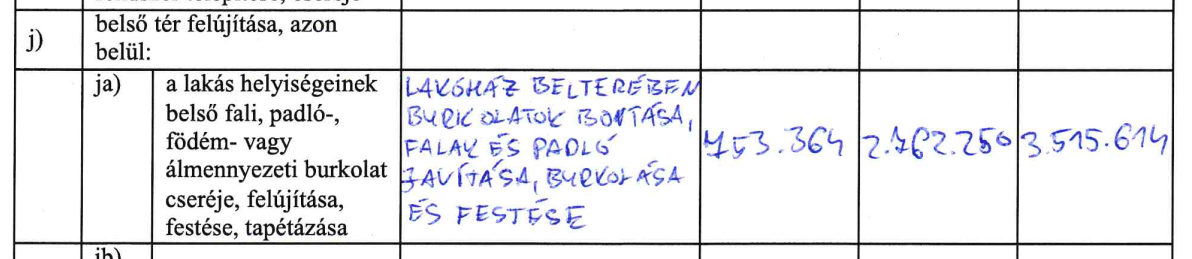 j)
belső tér felújítása, azon
belül:
ja)
a lakás helyiségeinek
belső fali, padló-,
födém- vagy
álmennyezeti burkolat
cseréje, felújítása,
festése, tapétázása
LAKÓHÁZ BELTERÉBEN
BURKOLATOK BONTÁSA,
FALAK ÉS PADLÓ
JAVÍTÁSA, BURKOLÁSA
ÉS FESTÉSE
753.364
2.762.250
3.515.614
jb)